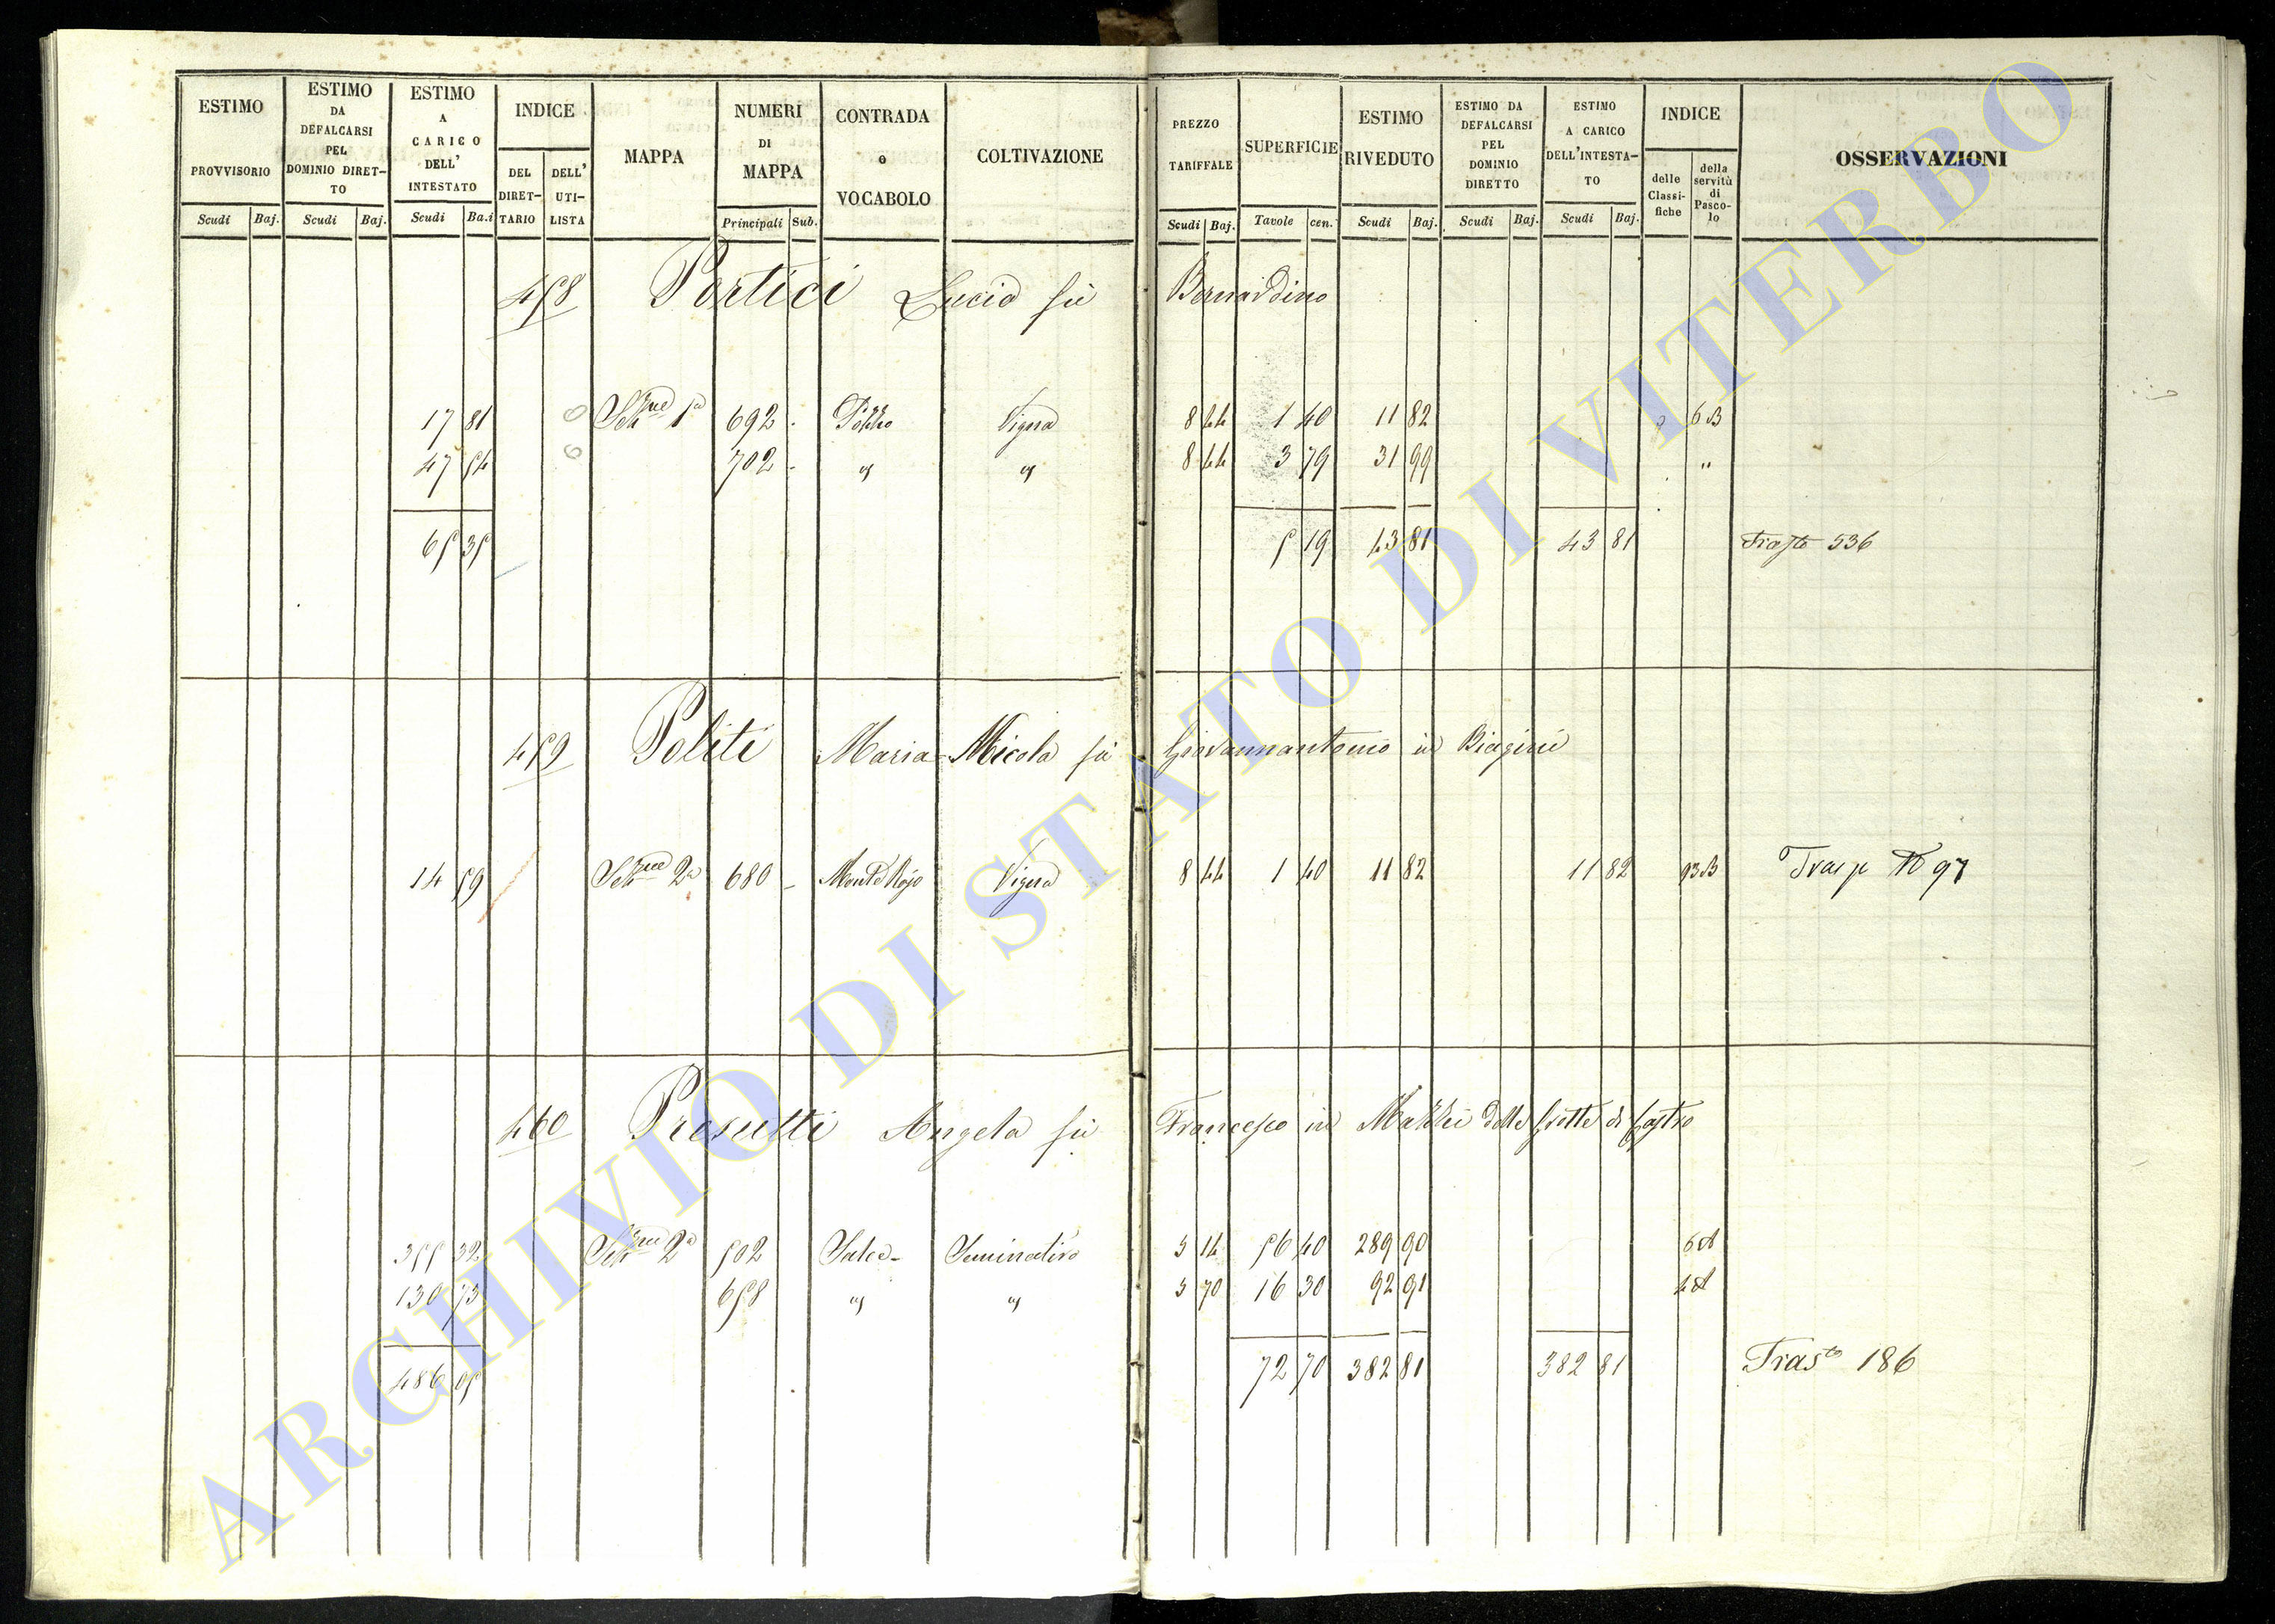 ESTIMO PROVVISORIO Scudi Baj.
ESTIMO DA DEFALCARSI PEL DOMINIO DIRET-TO Scudi Baj.
ESTIMO A CARICO DELL' INTESTATO Scudi Ba.i
INDICE DEL DIRET-TARIO DELL' UTI-LISTA
MAPPA
NUMERI DI MAPPA Principali Sub.
CONTRADA o VOCABOLO
COLTIVAZIONE
PREZZO TARIFFALE Scudi Baj.
SUPERFICIE Tavole cen.
ESTIMO RIVEDUTO Scudi Baj.
ESTIMO DA DEFALCARSI PEL DOMINIO DIRETTO Scudi Baj.
ESTIMO A CARICO DELL'INTESTA-TO Scudi Baj.
INDICE delle Classi-fiche della servitù di Pasco-lo
OSSERVAZIONI
458 Portici Lucia fù Bernardino
17 81 Sez.ne 1a 692 - Pozzo Vigna 8 44 1 40 11 82 6 B
47 54 702 - " " 8 44 3 79 31 99 "
65 35 5 19 43 81 43 81 Trasto 536
459 Politi Maria Nicola fù Giovannantonio in Biagini
14 59 Sez.ne 2a 680 - Monte Rojo Vigna 8 44 1 40 11 82 11 82 93 B Trasp 97
460 Presutti Angela fù Francesco in Mazzi delle Grotte di Castro
355 32 Sez.ne 2a 502 Salea Seminativo 5 14 56 40 289 90 6 A
130 73 658 " " 5 70 16 30 92 91 4 A
486 05 72 70 382 81 382 81 Trasto 186
ARCHIVIO DI STATO DI VITERBO